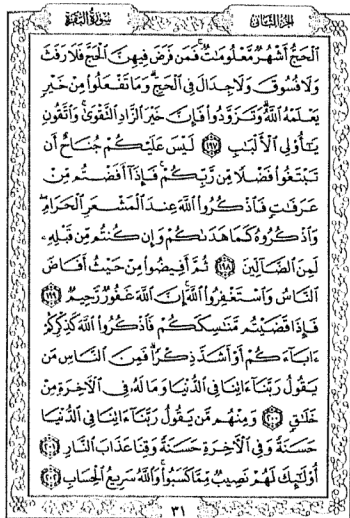 الجزء الثاني سورة البقرة
ٱلْحَجُّ أَشْهُرٌ مَّعْلُومَٰتٌ ۚ فَمَن فَرَضَ فِيهِنَّ ٱلْحَجَّ فَلَا رَفَثَ
وَلَا فُسُوقَ وَلَا جِدَالَ فِى ٱلْحَجِّ ۗ وَمَا تَفْعَلُوا۟ مِنْ خَيْرٍ
يَعْلَمْهُ ٱللَّهُ ۗ وَتَزَوَّدُوا۟ فَإِنَّ خَيْرَ ٱلزَّادِ ٱلتَّقْوَىٰ ۚ وَٱتَّقُونِ
يَٰٓأُو۟لِى ٱلْأَلْبَٰبِ ١٩٧ لَيْسَ عَلَيْكُمْ جُنَاحٌ أَن
تَبْتَغُوا۟ فَضْلًا مِّن رَّبِّكُمْ ۚ فَإِذَآ أَفَضْتُم مِّنْ
عَرَفَٰتٍ فَٱذْكُرُوا۟ ٱللَّهَ عِندَ ٱلْمَشْعَرِ ٱلْحَرَامِ ۖ
وَٱذْكُرُوهُ كَمَا هَدَىٰكُمْ وَإِن كُنتُم مِّن قَبْلِهِۦ
لَمِنَ ٱلضَّآلِّينَ ١٩٨ ثُمَّ أَفِيضُوا۟ مِنْ حَيْثُ أَفَاضَ
ٱلنَّاسُ وَٱسْتَغْفِرُوا۟ ٱللَّهَ ۚ إِنَّ ٱللَّهَ غَفُورٌ رَّحِيمٌ ١٩٩
فَإِذَا قَضَيْتُم مَّنَٰسِكَكُمْ فَٱذْكُرُوا۟ ٱللَّهَ كَذِكْرِكُمْ
ءَابَآءَكُمْ أَوْ أَشَدَّ ذِكْرًا ۗ فَمِنَ ٱلنَّاسِ مَن
يَقُولُ رَبَّنَآ ءَاتِنَا فِى ٱلدُّنْيَا وَمَا لَهُۥ فِى ٱلْءَاخِرَةِ مِنْ
خَلَٰقٍ ٢٠٠ وَمِنْهُم مَّن يَقُولُ رَبَّنَآ ءَاتِنَا فِى ٱلدُّنْيَا
حَسَنَةً وَفِى ٱلْءَاخِرَةِ حَسَنَةً وَقِنَا عَذَابَ ٱلنَّارِ ٢٠١
أُو۟لَٰٓئِكَ لَهُمْ نَصِيبٌ مِّمَّا كَسَبُوا۟ ۚ وَٱللَّهُ سَرِيعُ ٱلْحِسَابِ ٢٠٢
٣١